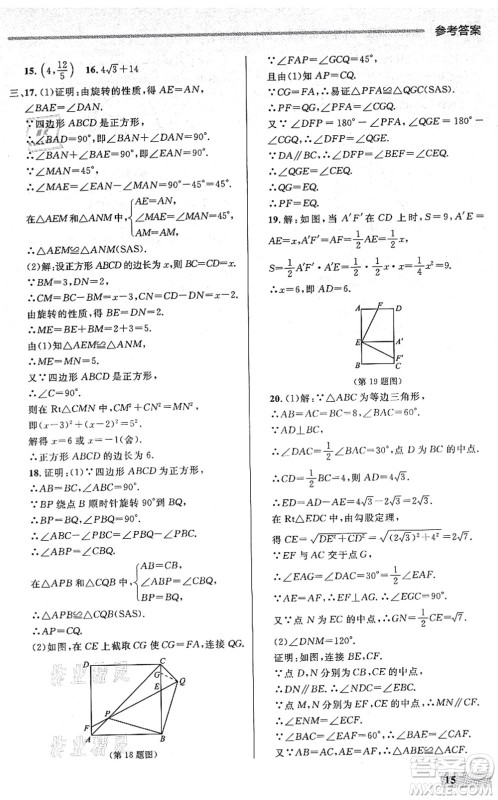 参考答案
15. (4, 12/5)  16. 4√3+14
三、17. (1)证明：由旋转的性质，得AE=AN，
∠BAE=∠DAN.
∵四边形ABCD是正方形，
∴∠BAD=90°，即∠BAN+∠DAN=90°.
∴∠BAN+∠BAE=90°，即∠EAN=90°.
∵∠MAN=45°，
∴∠MAE=∠EAN-∠MAN=90°-45°=45°.
在△AEM和△ANM中 {AE=AN, ∠MAE=∠MAN, AM=AM,
∴△AEM≌△ANM(SAS).
(2)解：设正方形ABCD的边长为x，则BC=CD=x.
∵BM=3，DN=2，
∴CM=BC-BM=x-3，CN=CD-DN=x-2.
由旋转的性质，得BE=DN=2，
∴ME=BE+BM=2+3=5.
由(1)知△AEM≌△ANM，
∴MN=ME=5.
又∵四边形ABCD是正方形，
∴∠C=90°.
则在Rt△CMN中，CM²+CN²=MN²，
即(x-3)²+(x-2)²=5².
解得x=6或x=-1(舍).
∴正方形ABCD的边长为6.
18. 证明：(1)∵四边形ABCD为正方形，
∴∠ABC=90°，AB=CB.
∵BP绕点B顺时针旋转90°到BQ，
∴BP=BQ，∠PBQ=90°.
∴∠ABP=∠CBQ.
在△APB和△CQB中 {AB=CB, ∠ABP=∠CBQ, BP=BQ,
∴△APB≌△CQB(SAS).
(2)如图，在CE上截取CG使CG=FA，连接QG.
D
C
G
E
Q
P
F
A
B
(第18题图)
∵∠PAF=∠GCQ=45°，
且由(1)知AP=CQ，
又∵CG=FA，∴易证△PFA≌△QGC(SAS).
∴PF=QG，∠PFA=∠QGC.
又∵∠DFP=180°-∠PFA，∠QGE=180°-∠QGC，
∴∠DFP=∠QGE.
∵DA∥BC，∴∠DFP=∠CEQ.
∴∠QGE=∠CEQ.
∴QG=EQ.
∴PF=EQ.
19. 解：如图，当A′F′在CD上时，S=9，A′E=AE=x，
A′F′=AF=1/2AE=1/2x，
S=1/2A′E·A′F′=1/2·x·1/2x=1/4x²=9.
∴x=6，即AE=6.
A
F
D
E
A′
F′
B
C
(第19题图)
20. (1)解：∵△ABC为等边三角形，
∴AB=AC=BC=8，∠BAC=60°.
∵AD⊥BC，
∴∠DAC=30°，DC=4.
∴AD=4√3.
∴ED=AD-AE=4√3-2√3=2√3.
在Rt△EDC中，由勾股定理，
得CE=√(DE²+CD²)=√((2√3)²+4²)=2√7.
∵EF与AC交于点G，
∴∠EAG=∠FAG=1/2∠EAF.
∴EF⊥AG，GF=GE=1/2EF.
又∵点N为EC的中点，∴GN=1/2CE=√7.
(2)∠DNM=120°.
证明：如图，连接BE，CF.
∵点D，N分别为BC，EC的中点，
∴DN∥BE，∴∠CDN=∠CBE.
又∵点M，N分别为EF，EC的中点，
∴MN∥CF，∴∠ENM=∠ECF.
∵∠BAC=∠EAF，
∴∠BAE=∠CAF.
又∵AB=AC，AE=AF，
15